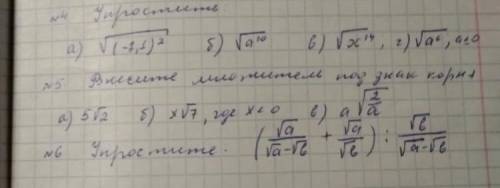 №4 Упростите:
а) √(-2,1)² б) √a¹⁰ в) √x¹⁴, г) √a⁶, a≤0
№5 Внесите множитель под знак корня
а) 5√2 б) x√7, где x<0 в) a√(2/a)
№6 Упростите. (√a/(√a-√b) + √a/√b) : √b/(√a-√b)